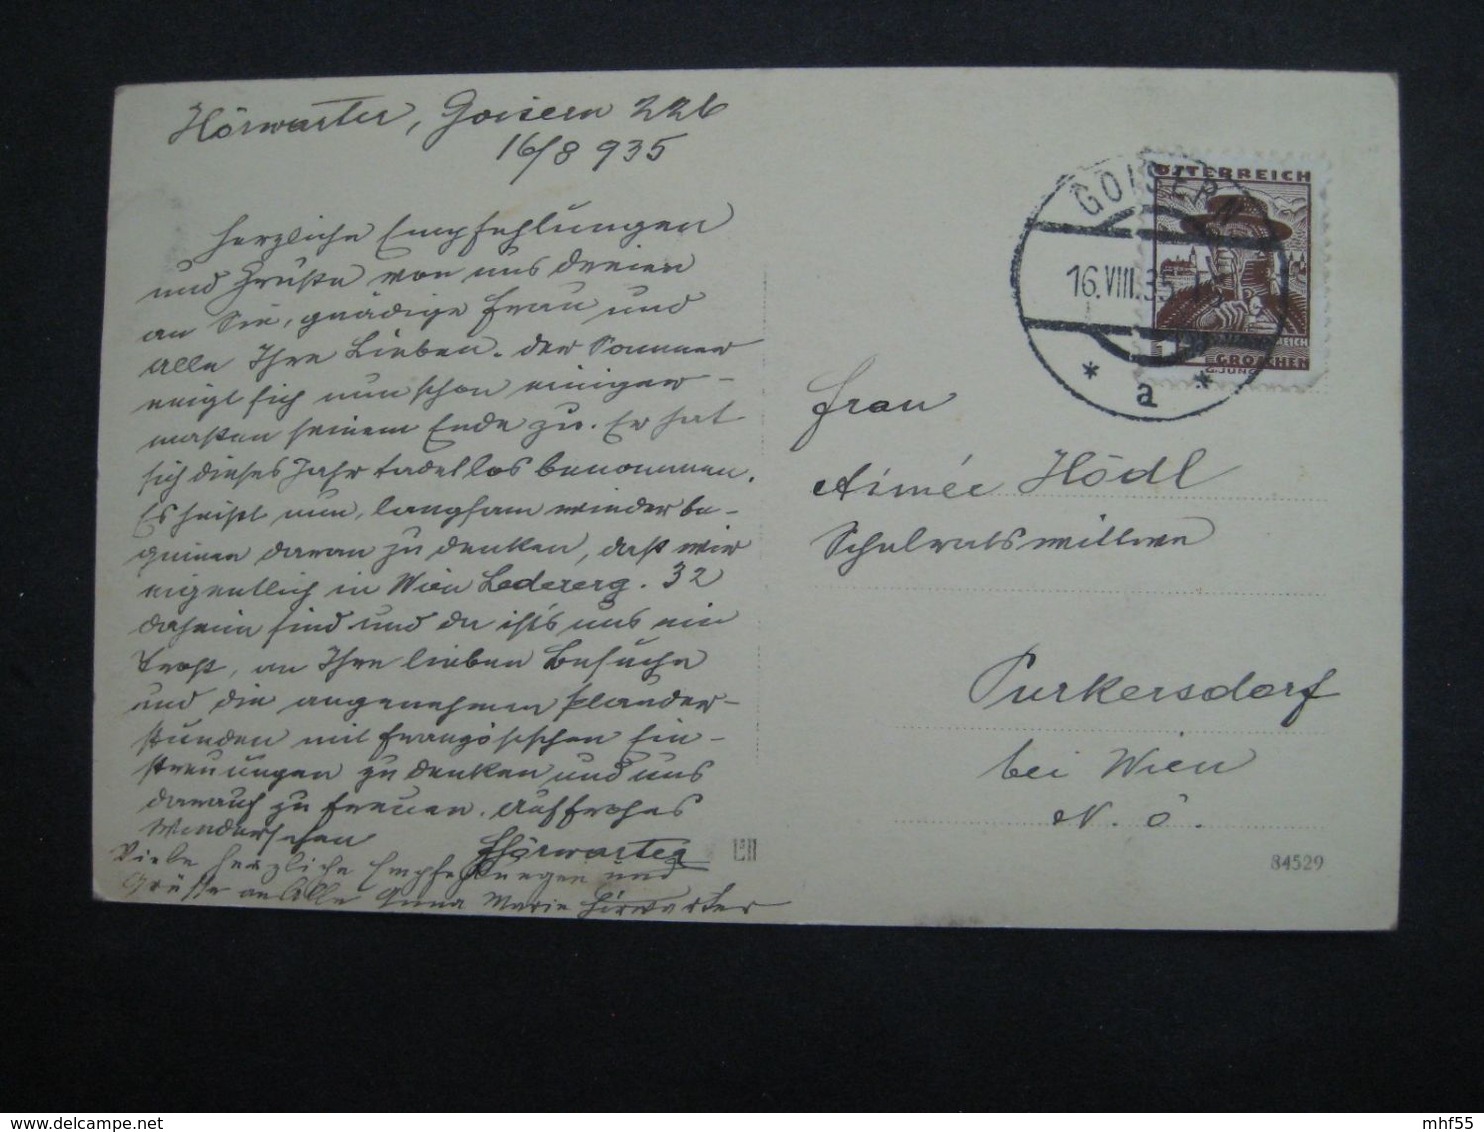 Hörwarter, Goisern 226
16/8 935
Herzliche Empfehlungen
und Grüße von uns dreien
an Sie, gnädige Frau und
alle Ihre Lieben. Der Sommer
neigt sich nun schon einiger-
maßen seinem Ende zu. Er hat
sich dieses Jahr tadellos benommen.
Es heißt nun, langsam wieder be-
ginnen daran zu denken, daß wir
eigentlich in Wien Ledererg. 32
daheim sind und da ist's uns ein
Trost, an Ihre lieben Besuche
und die angenehmen Plauder-
stunden mit französischen Ein-
streuungen zu denken und uns
darauf zu freuen. Auf frohes
Wiedersehen
Hörwarter
Viele herzliche Empfehlungen und
Grüße an Alle Anna Marie Hörwarter
ÖSTERREICH
GROSCHEN
G.JUNG
GOISERN
16.VIII.35
* a *
Frau
Aimée Hödl
Schulratswittwe
Purkersdorf
bei Wien
N. Ö.
84529
delcampe.net
mhf55